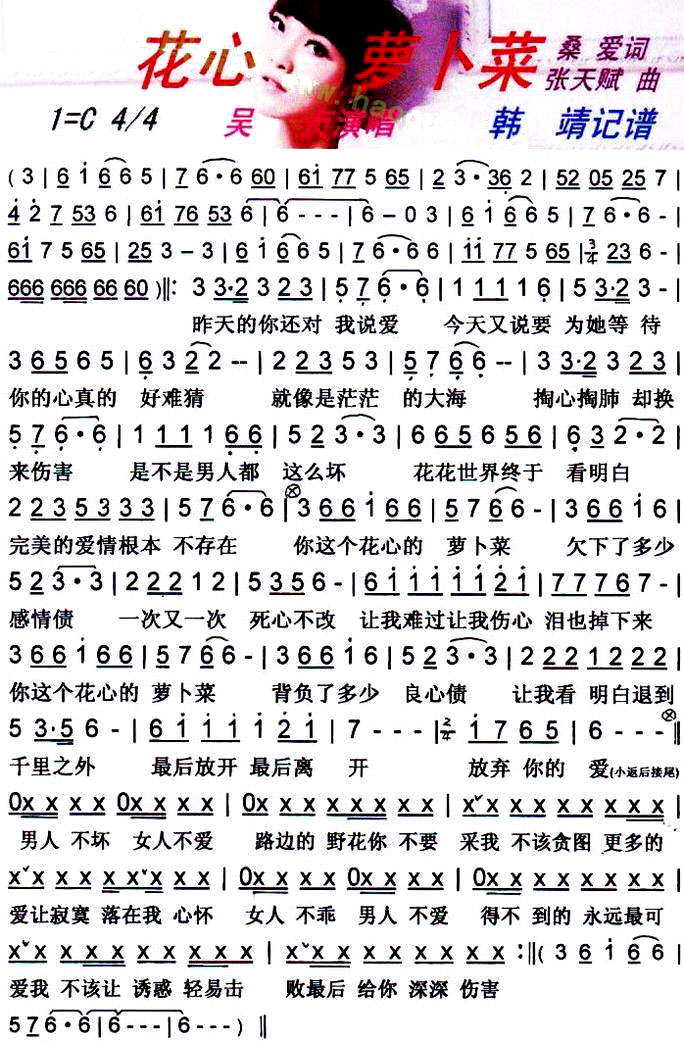 花心 萝卜菜
桑 爱词
张天赋 曲
1=C 4/4 吴 演唱 韩 靖记谱
( 3 | 6 i 6 6 5 | 7 6·6 60 | 6i 77 5 65 | 2 3·36 2 | 52 05 25 7 |
4 2 7 53 6 | 6i 76 53 6 | 6 - - - | 6 - 0 3 | 6 i 66 5 | 7 6·6 - |
6i 7 5 65 | 25 3 - 3 | 6 i 66 5 | 7 6·6 6 | ii 77 5 65 | 3/4 23 6 - |
666 666 66 60 ) ‖: 3 3·2 3 2 3 | 5 7 6·6 | 1 1 1 1 6 | 5 3·2 3 - |
昨天的你还对 我说爱 今天又说要 为她等 待
3 6 5 6 5 | 6 3 2 2 - - | 2 2 3 5 3 | 5 7 6 6 - - | 3 3·2 3 2 3 |
你的心真的 好难猜 就像是茫茫 的大海 掏心掏肺 却换
5 7 6·6 | 1 1 1 1 6 6 | 5 2 3·3 | 6 6 5 6 5 6 | 6 3 2·2 |
来伤害 是不是男人都 这么坏 花花世界终于 看明白
2 2 3 5 3 3 3 | 5 7 6·6 | 3 6 6 i 6 6 | 5 7 6 6 - | 3 6 6 i 6 |
完美的爱情根本 不存在 你这个花心的 萝卜菜 欠下了多少
5 2 3·3 | 2 2 2 1 2 | 5 3 5 6 - | 6 i i i i 2 i | 7 7 7 6 7 - |
感情债 一次又一次 死心不改 让我难过让我伤心 泪也掉下来
3 6 6 i 6 6 | 5 7 6 6 - | 3 6 6 i 6 | 5 2 3·3 | 2 2 2 1 2 2 2 |
你这个花心的 萝卜菜 背负了多少 良心债 让我看 明白退到
5 3·5 6 - | 6 i i i 2 i | 7 - - - | 2/4 i 7 6 5 | 6 - - - ‖
千里之外 最后放开 最后离 开 放弃 你的 爱(小返后接尾)
0x x x x 0x x x x | 0x x x x x x x | xˇx x x x x xxx x |
男人 不坏 女人不爱 路边的 野花你 不要 采我 不该贪图 更多的
xˇx x x xxˇx x x | 0x x x 0x x x x | 0x x x x x x x |
爱让寂寞 落在我 心怀 女人 不乖 男人 不爱 得不 到的 永远最可
xˇx x xx x x x x | x xxx x x x x x :‖ ( 3 6 i 6 6 |
爱我 不该让 诱惑 轻易击 败最后 给你 深深 伤害
5 7 6·6 | 6 - - - | 6 - - ) ‖